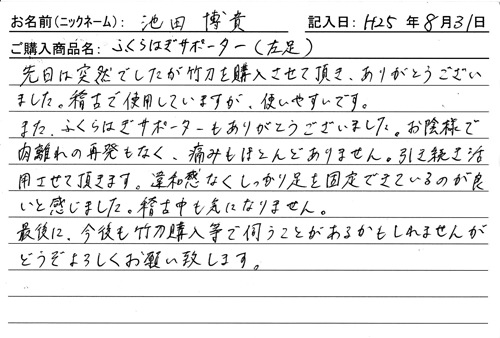 お名前(ニックネーム): 池田 博貴 記入日: H25 年 8 月 31 日
ご購入商品名: ふくらはぎサポーター(左足)
先日は突然でしたが竹刀を購入させて頂き、ありがとうござい
ました。稽古で使用していますが、使いやすいです。
また、ふくらはぎサポーターもありがとうございました。お陰様で
肉離れの再発もなく、痛みもほとんどありません。引き続き活
用させて頂きます。違和感なくしっかり足を固定できているのが良
いと感じました。稽古中も気になりません。
最後に、今後も竹刀購入等で伺うことがあるかもしれませんが
どうぞよろしくお願い致します。